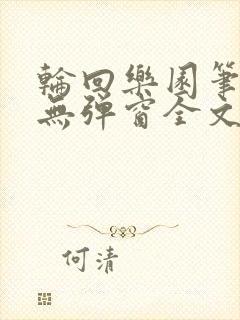 輪回樂園筆
無彈窗全文
何清